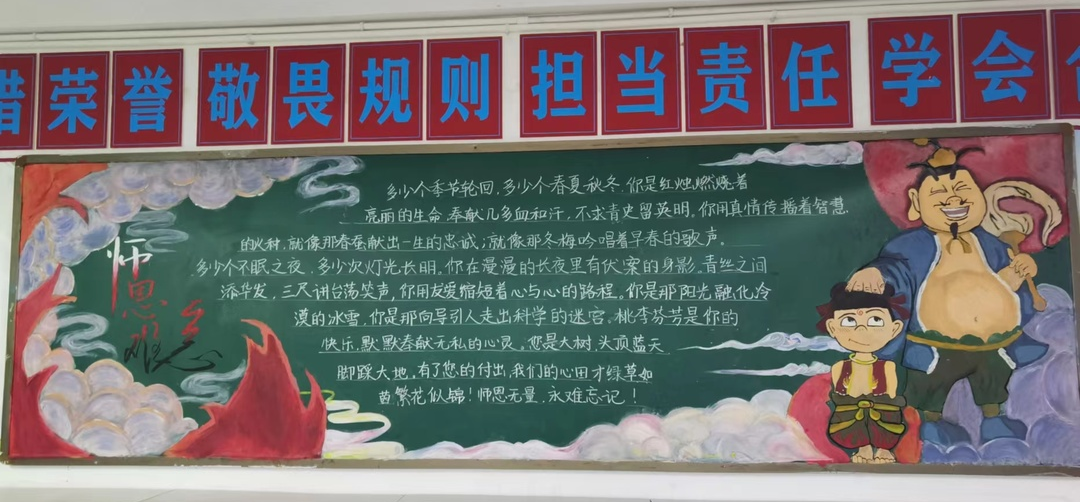 惜荣誉 敬畏规则 担当责任 学会合
师恩难忘
多少个季节轮回，多少个春夏秋冬，你是红烛燃烧着
亮丽的生命，奉献几多血和汗，不求青史留英明。你用真情传播着智慧
的火种，就像那春蚕献出一生的忠诚；就像那冬梅吟唱着早春的歌声。
多少个不眠之夜，多少次灯光长明，你在漫漫的长夜里有伏案的身影，青丝之间
添华发，三尺讲台荡笑声，你用友爱缩短着心与心的路程。你是那阳光融化冷
漠的冰雪，你是那向导引人走出科学的迷宫。桃李芬芳是你的
快乐，默默奉献无私的心灵。您是大树，头顶蓝天
脚踩大地，有了您的付出，我们的心田才绿草如
茵繁花似锦！师恩无量，永难忘记！